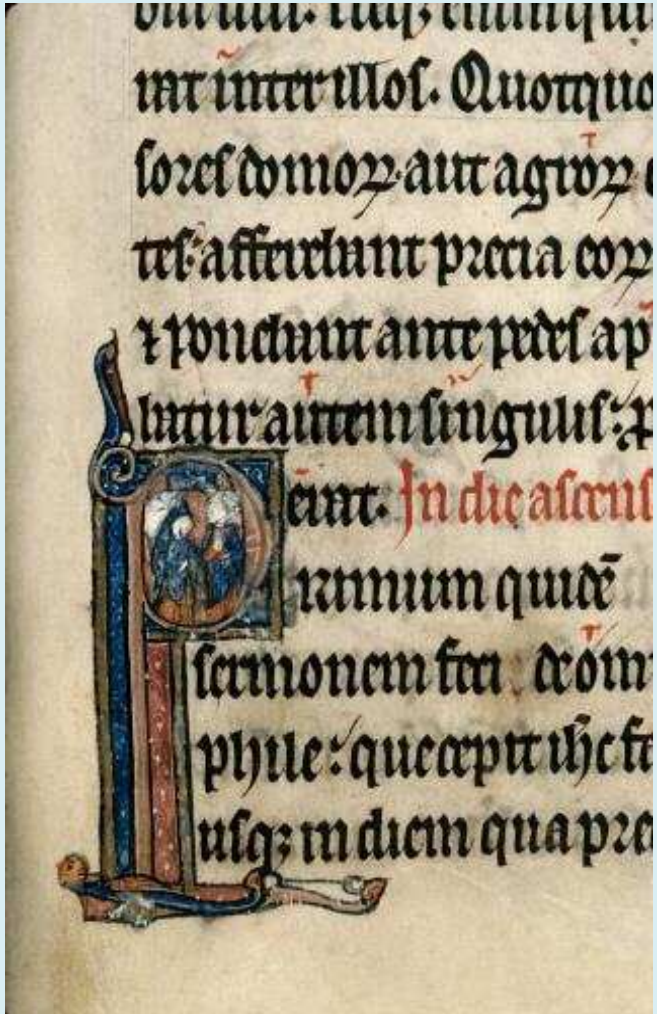 rat inter illos. Quotquo
sores domoꝝ aut agroꝝ
tes: afferebant precia eoꝝ
⁊ ponebant ante pedes ap
batur autem singulis:
erat. In die ascens
Primum quidē
sermonem feci de om̄
phile: que cepit ih̄c
usqꝫ in diem qua pre